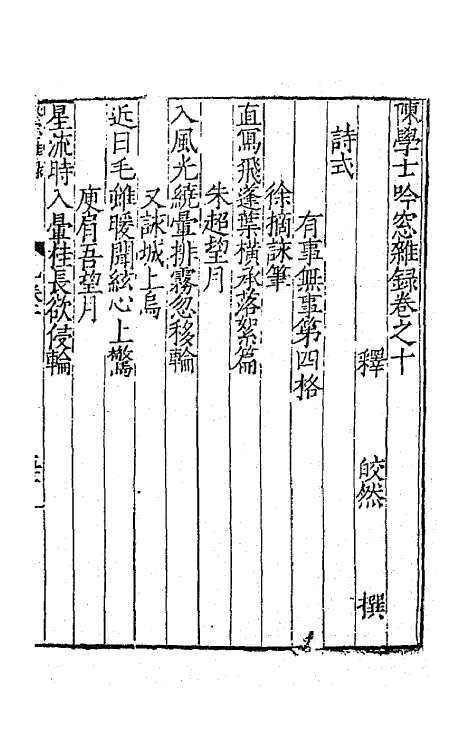 陳學士吟窓雜録卷之十
釋 皎然 撰
詩式
有事無事第四格
徐摛詠筆
直寫飛蓬葉橫承落絮篇
朱超望月
入風光繞暈排霧忽移輪
又詠城上烏
近日毛雖暖聞絃心上驚
庾肩吾望月
星流時入暈桂長欲侵輪